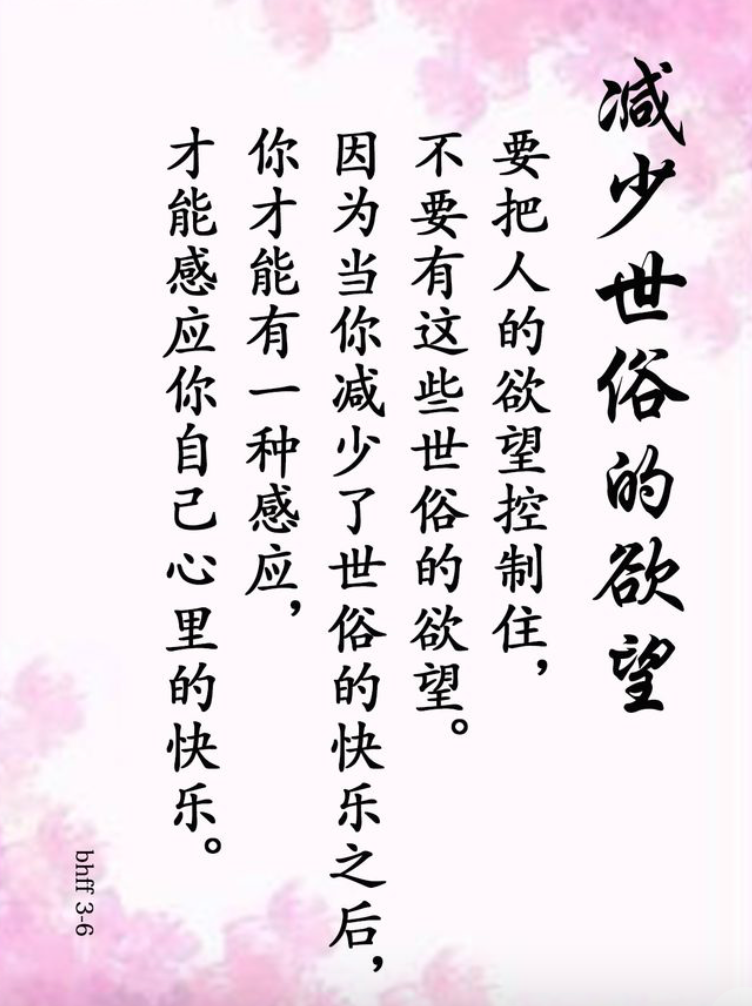 减少世俗的欲望
要把人的欲望控制住，
不要有这些世俗的欲望。
因为当你减少了世俗的快乐之后，
你才能有一种感应，
才能感应你自己心里的快乐。
bhff 3-6